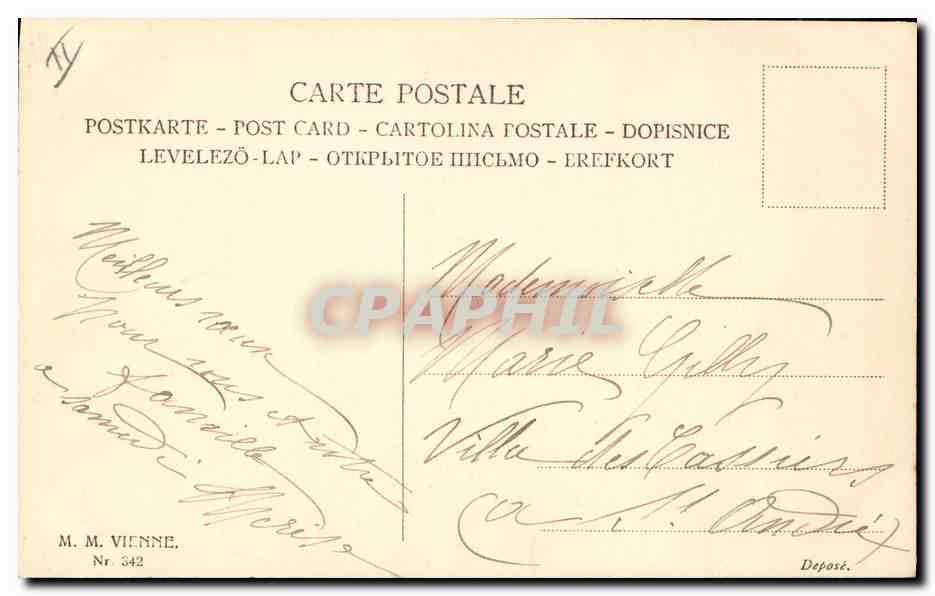 CARTE POSTALE
POSTKARTE – POST CARD – CARTOLINA POSTALE – DOPISNICE
LEVELEZÖ-LAP – ОТКРЫТОЕ ПИСЬМО – BREFKORT
Meilleurs vœux
Pour vous et votre
famille
a samedi
Mademoiselle
Marie Gilly
Villa des
(a St André)
CPAPHIL
M. M. VIENNE.
Nr. 342
Deposé.